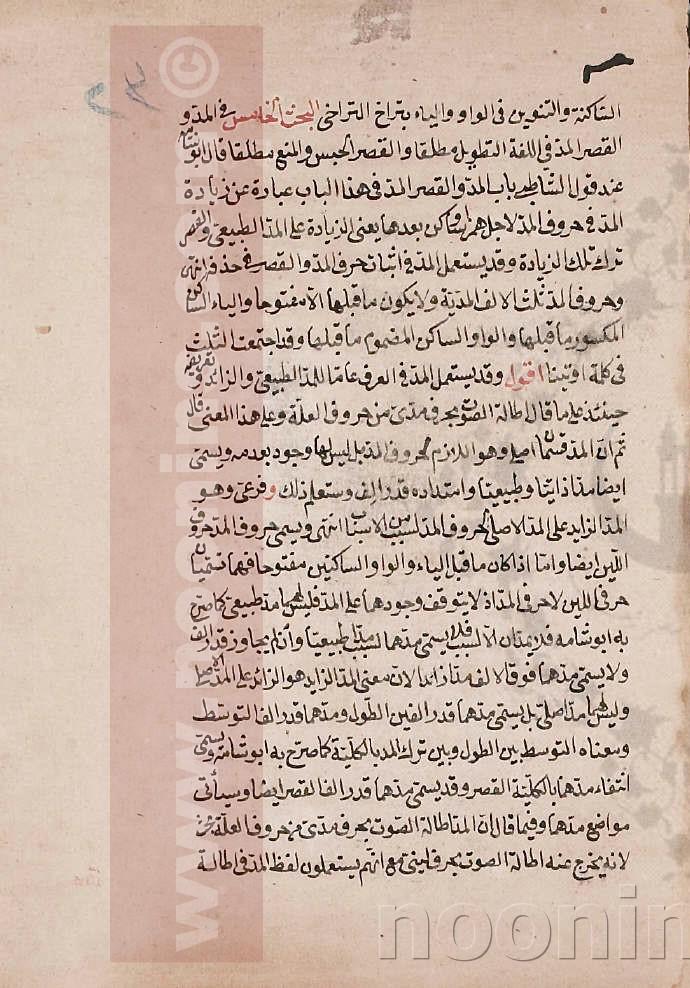 الساكنة والتنوين فى الواو والياء بتراخ التراخى البحث الخامس فى المد و
القصر المد فى اللغة التطويل مطلقا والقصر الحبس والمنع مطلقا قال ابو شامه
عند قول الشاطبى باب المد والقصر المد فى هذا الباب عبارة عن زيادة
المد فى حروف المد لاجل همز او ساكن بعدها يعنى الزيادة على المد الطبيعى والقصر
ترك تلك الزيادة وقد يستعمل المد فى اثبات حرف المد والقصر فى حذفه انتهى
وحروف المد ثلث الالف المدية ولا يكون ما قبلها الا مفتوحا والياء الساكن
المكسور ما قبلها والواو الساكن المضموم ما قبلها وقد اجتمعت الثلث
فى كلة اوتينا اقول وقد يستعمل المد فى العرف عاما للمد الطبيعى والزائد وتعريفه
حينئذ على ما قال اطالة الصوت بحرف مدى من حروف العلة وعلى هذا المعنى قال
ثم ان المد قسمان اصلى وهو اللازم لحروف المد بل ليس لها وجود بعدمه ويسمى
ايضا مدا ذاتيا وطبيعيا وامتداده قدر الف وستعلم ذلك وفرعى وهو
المد الزايد على المد الاصلى لحروف المد لسبب من الاسباب انتهى ويسمى حروف المد حروف
اللين ايضا واما اذا كان ما قبل الياء والواو الساكنين مفتوحا فهما تسميان
حرفى اللين لا حرفى المد اذ لا يتوقف وجودهما على المد فليس لهما مد طبيعى كما صرح
به ابو شامه فلا يمدان الا لسبب فلا يسمى مدهما لسبب مدا طبيعيا وان لم يجاوز قدر الف
ولا يسمى مدهما فوق الالف مدا زائدا لان معنى المد الزايد هو الزائد على المد الاصلى
وليس لهما مد اصلى بل يسمى مدهما قدر الفين الطول ومدهما قدر الف التوسط
ومعناه التوسط بين الطول وبين ترك المد بالكلية كما صرح به ابو شامه ويسمى
انتفاء مدهما بالكلية القصر وقد يسمى مدهما قدر الف القصر ايضا وسيأتى
مواضع مدهما وفيما قال ان المد اطالة الصوت بحرف مدى من حروف العلة بحث
لانه يخرج عنه اطالة الصوت بحرف لينى مع انهم يستعملون لفظ المد فى اطالة
www.noonin
©
noonin